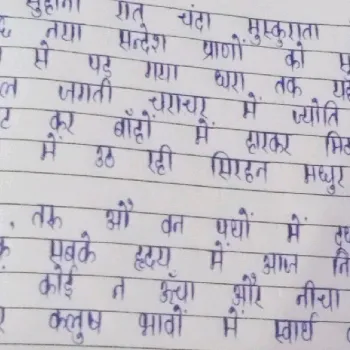 सुहानी रात चंदा मुस्कुराता
नया सन्देश प्राणों को
में पड़ गया धरा तक
जगती चराचर में ज्योति
कर बाँहों में हारकर
में उठ रही सिहरन मधुर
तक औ वन पथों में
सबके हृदय में आज
कोई न ऊँचा और नीचा
कलुष भावों में स्वार्थ